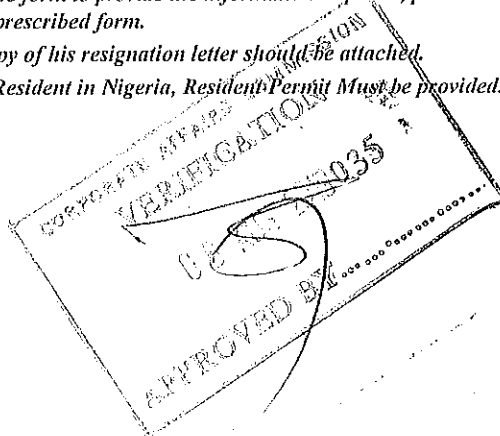 prescribed form.
py of his resignation letter should be attached.
Resident in Nigeria, Resident Permit Must be provided.
CORPORATE AFFAIRS COMMISSION
VERIFICATION
APPROVED BY